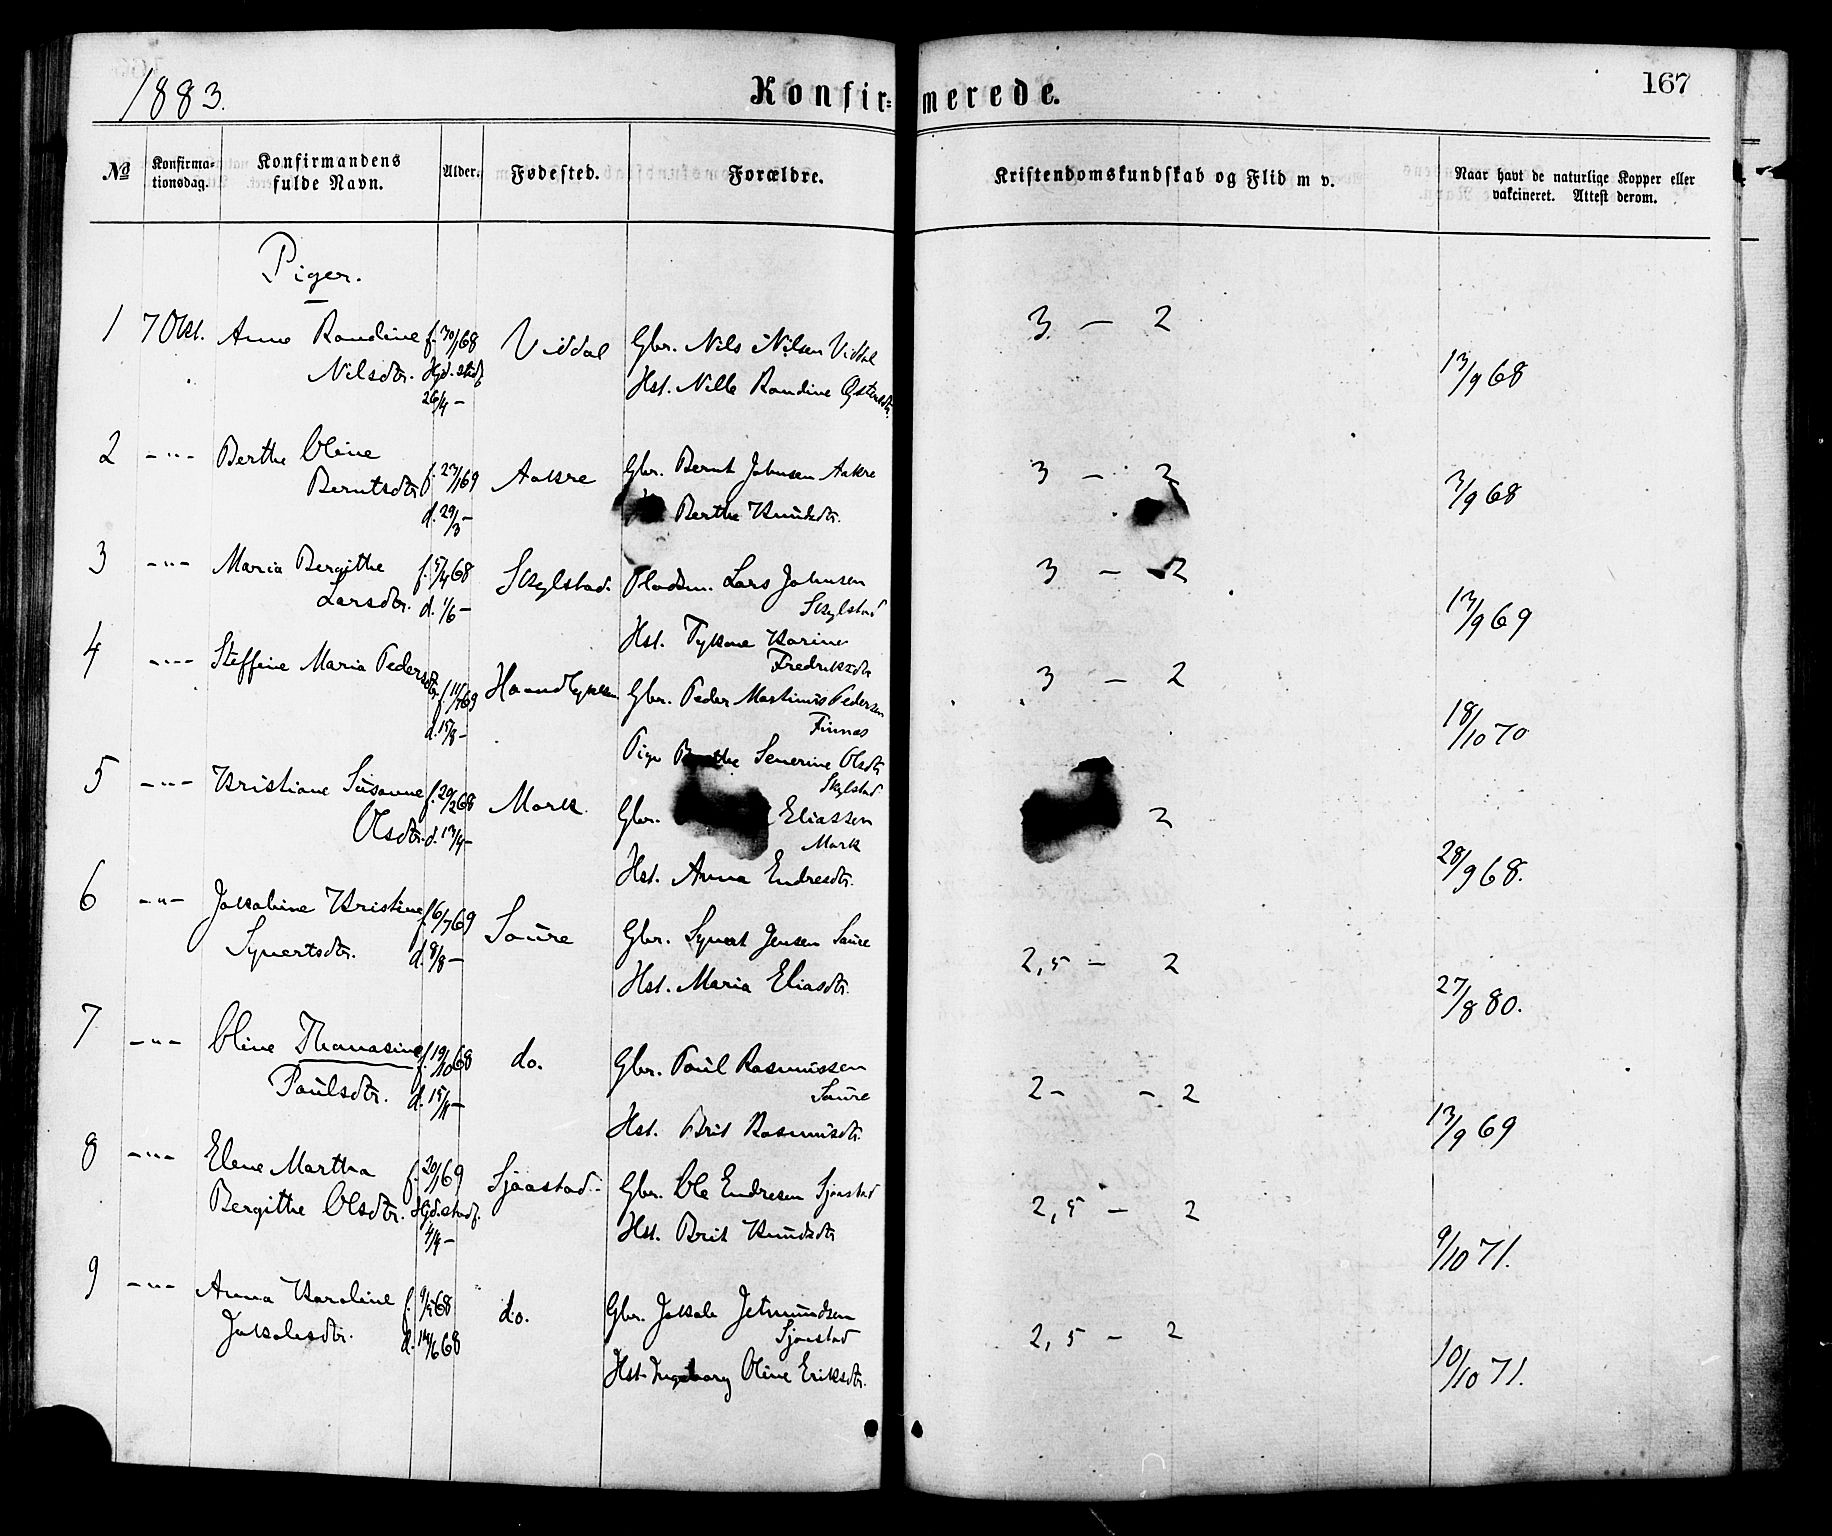 1883. Konfirmerede. 167
№ Konfirmationsdag. Konfirmandens fulde Navn. Alder. Fødested. Forældre. Kristendomskundskab og Flid m v. Naar havt de naturlige Kopper eller vakcineret. Attest derom.
Piger.
1 7 Okt. Anne Randine f. 30/1 68 Viddal Gbr. Nils Nilsen Viddal 3 - 2
Nilsdtr. Hjd. stadf. 26/4 - Hst. Nille Randine 13/9 68
2 -"- Berthe Oline Aakre Gbr. Bernt Johnsen Aakre 3 - 2
Berntsdtr f. 23/1 69 3/9 68
d. 29/3 - Berthe Knutsdtr.
3 -"- Maria Bergithe f. 5/4 68 Skylstad. Pladsm. Lars Johnsen 3 - 2
Larsdtr. d. 1/6 - Skylstad 13/9 69
Hst. Karine
Fredriksdtr
4 -"- Steffine Maria Pedersdtr. f. 11/7 69 Gbr. Peder Martinus Pedersen 3 - 2
d. 15/8 - Finnes 18/10 70
Pige Berthe Severine Olsdtr
Skylstad
5 -"- Kristiane Susanne f. 20/2 68 Mork. Gbr. Eliassen 2
Olsdtr. d. 13/4 - Mork
Hst. Anna Endresdtr. 28/9 68.
6 -"- Jakobine Kristine f. 6/7 69 Saure Gbr. Syvert Jensen Saure
Syvertsdtr. d. 8/8 - 2,5 - 2
Hst. Maria Eliasdtr. 27/8 80.
7 -"- Oline Thomasine f. 19/10 68 do. Gbr. Paul Rasmussen
Paulsdtr. d. 15/11 - Saure 2 - - 2
Hst. Brit Rasmusdtr. 13/9 69
8 -"- Elene Martha f. 20/1 69 Sjaastad. Gbr. Ole Endresen Sjaastad
Bergithe Olsdtr. Hjd. stadf. 4/4 - Hst. Brit Knudsdtr 2,5 - 2
9/10 71.
9 -"- Anna Karoline f. 9/5 68 do. Gbr. Jakob Jetmundsen
Jakobsdtr. d. 14/6 68 Sjaastad 2,5 - 2
Hst. Ingeborg Oline Eriksdtr. 10/10 71.